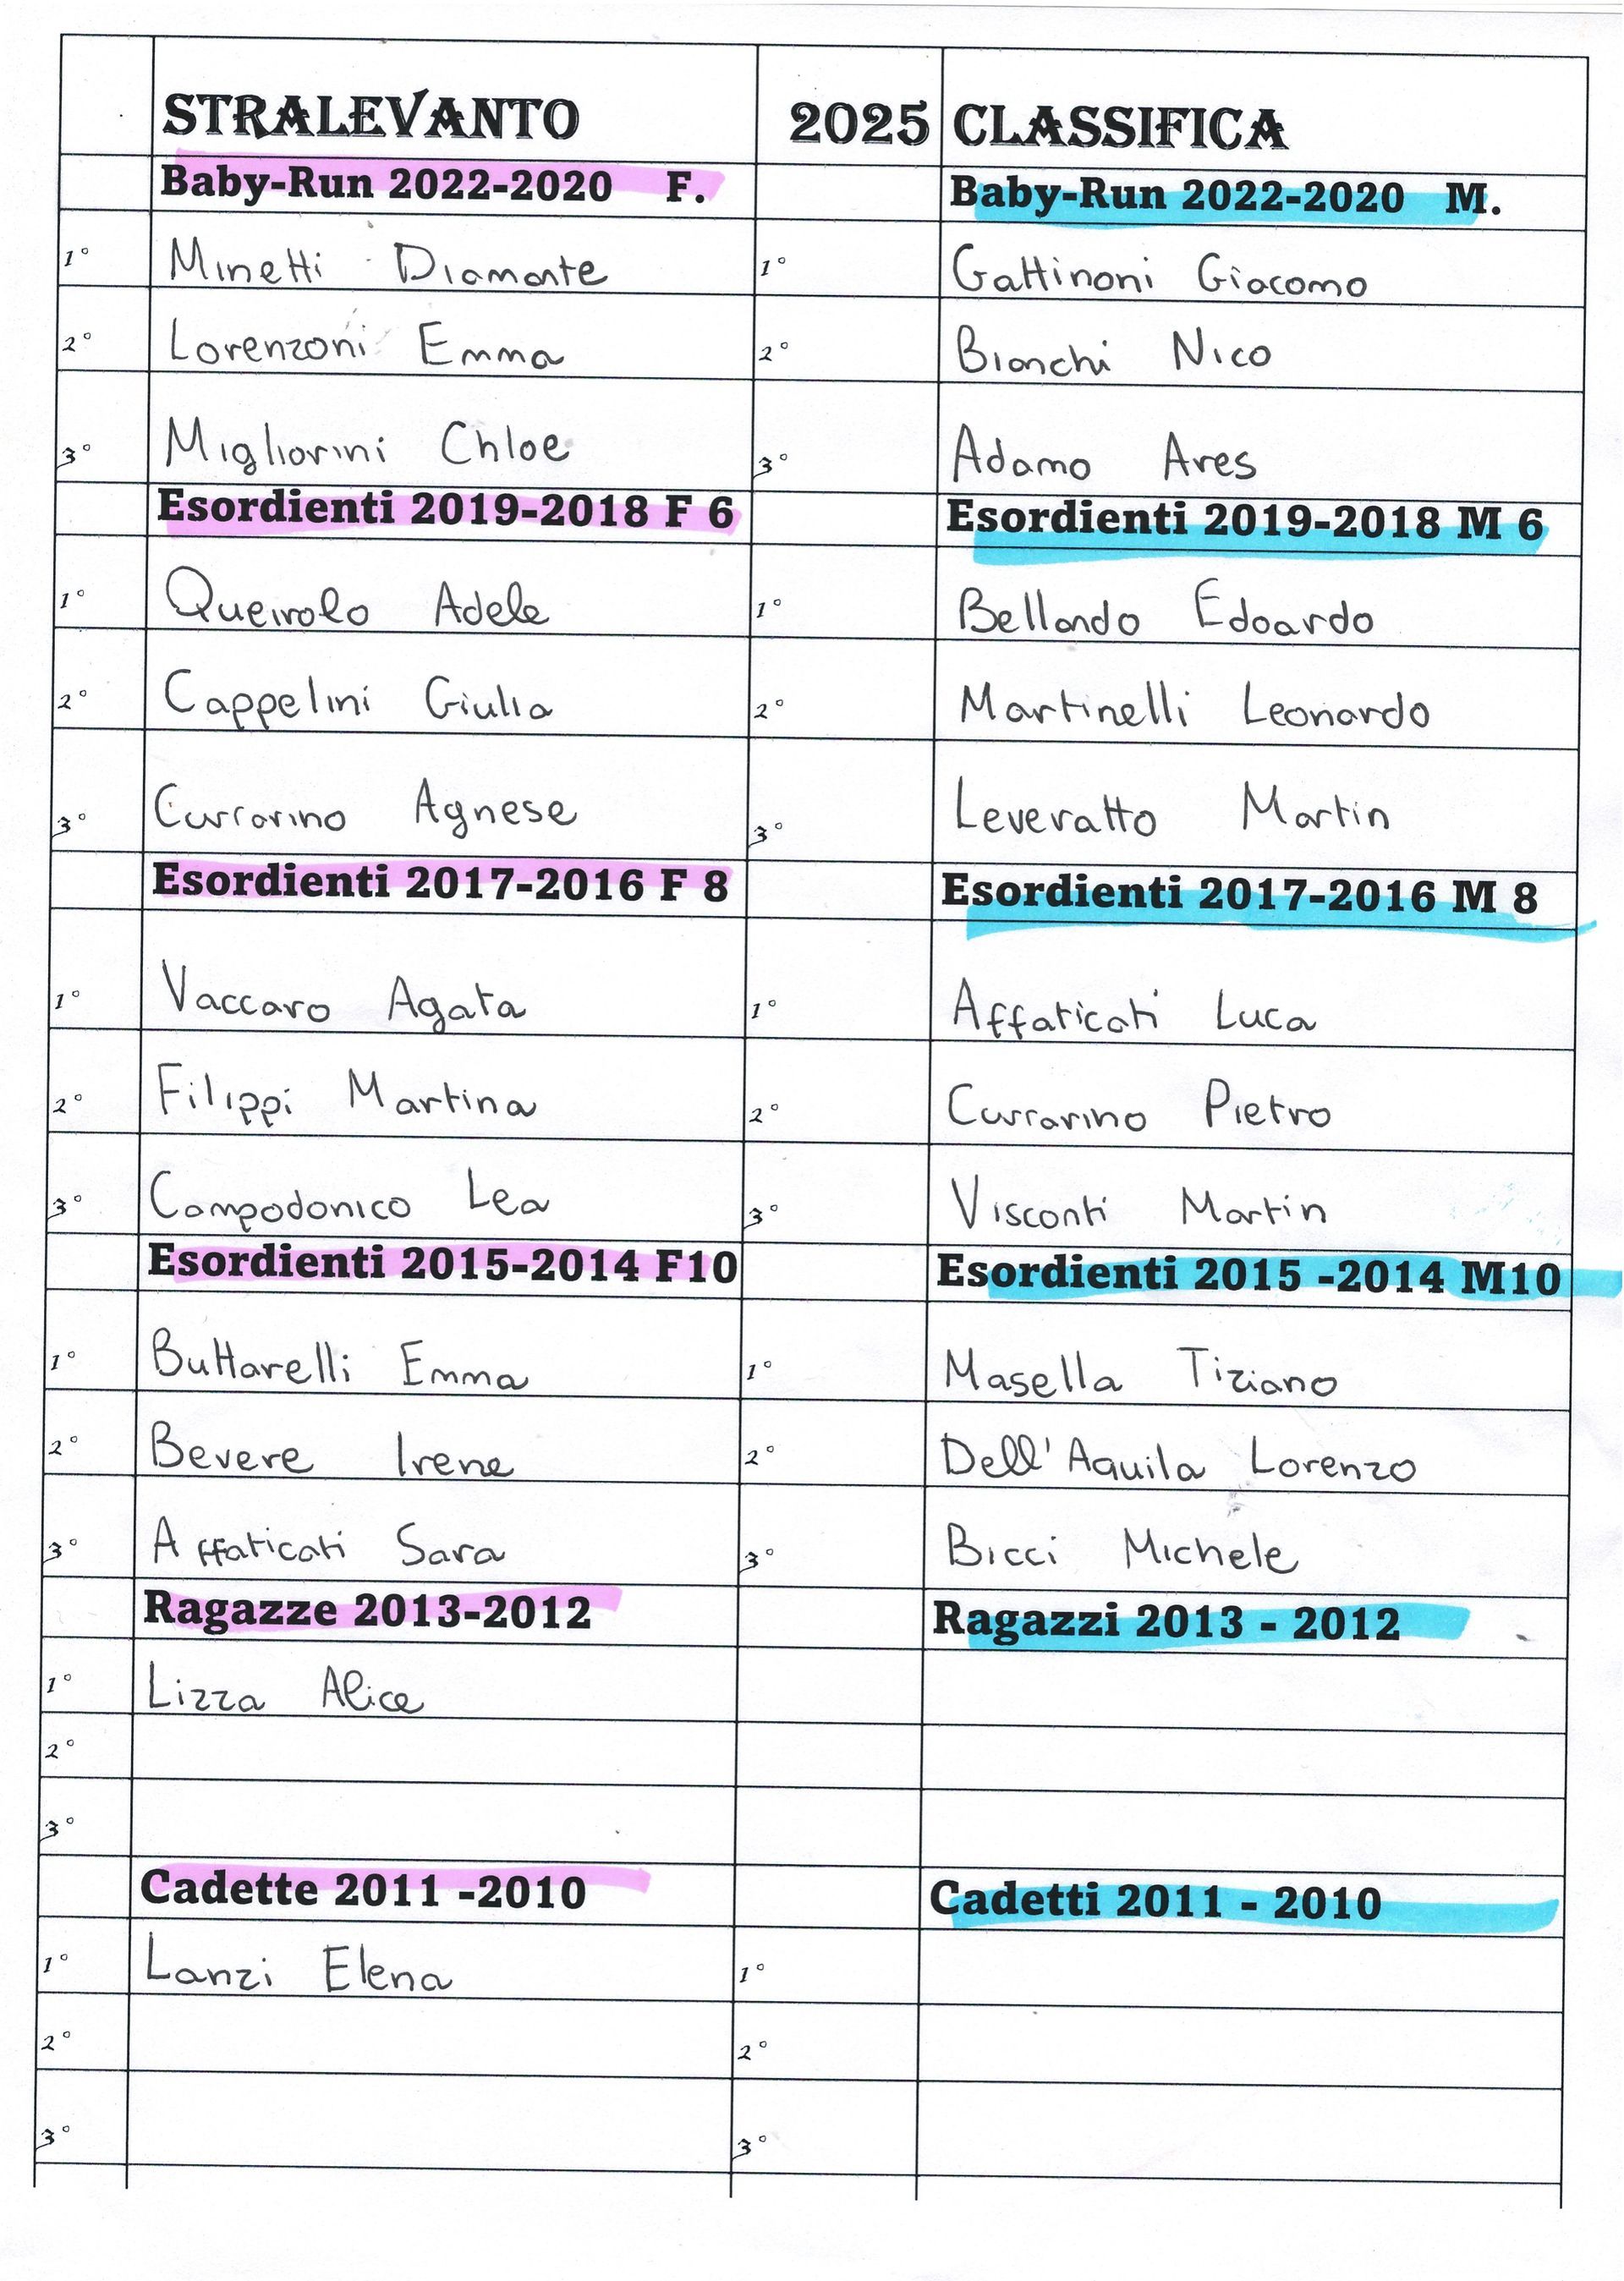 STRALEVANTO 2025 CLASSIFICA
Baby-Run 2022-2020 F. Baby-Run 2022-2020 M.
1° Minetti Diamante 1° Gattinoni Giacomo
2° Lorenzoni Emma 2° Bianchi Nico
3° Migliorini Chloe 3° Adamo Ares
Esordienti 2019-2018 F 6 Esordienti 2019-2018 M 6
1° Queirolo Adele 1° Bellando Edoardo
2° Cappelini Giulia 2° Martinelli Leonardo
3° Currarino Agnese 3° Leveratto Martin
Esordienti 2017-2016 F 8 Esordienti 2017-2016 M 8
1° Vaccaro Agata 1° Affaticati Luca
2° Filippi Martina 2° Currarino Pietro
3° Campodonico Lea 3° Visconti Martin
Esordienti 2015-2014 F10 Esordienti 2015 -2014 M10
1° Buttarelli Emma 1° Masella Tiziano
2° Bevere Irene 2° Dell'Aquila Lorenzo
3° Affaticati Sara 3° Bicci Michele
Ragazze 2013-2012 Ragazzi 2013 - 2012
1° Lizza Alice
2°
3°
Cadette 2011 -2010 Cadetti 2011 - 2010
1° Lanzi Elena 1°
2° 2°
3° 3°